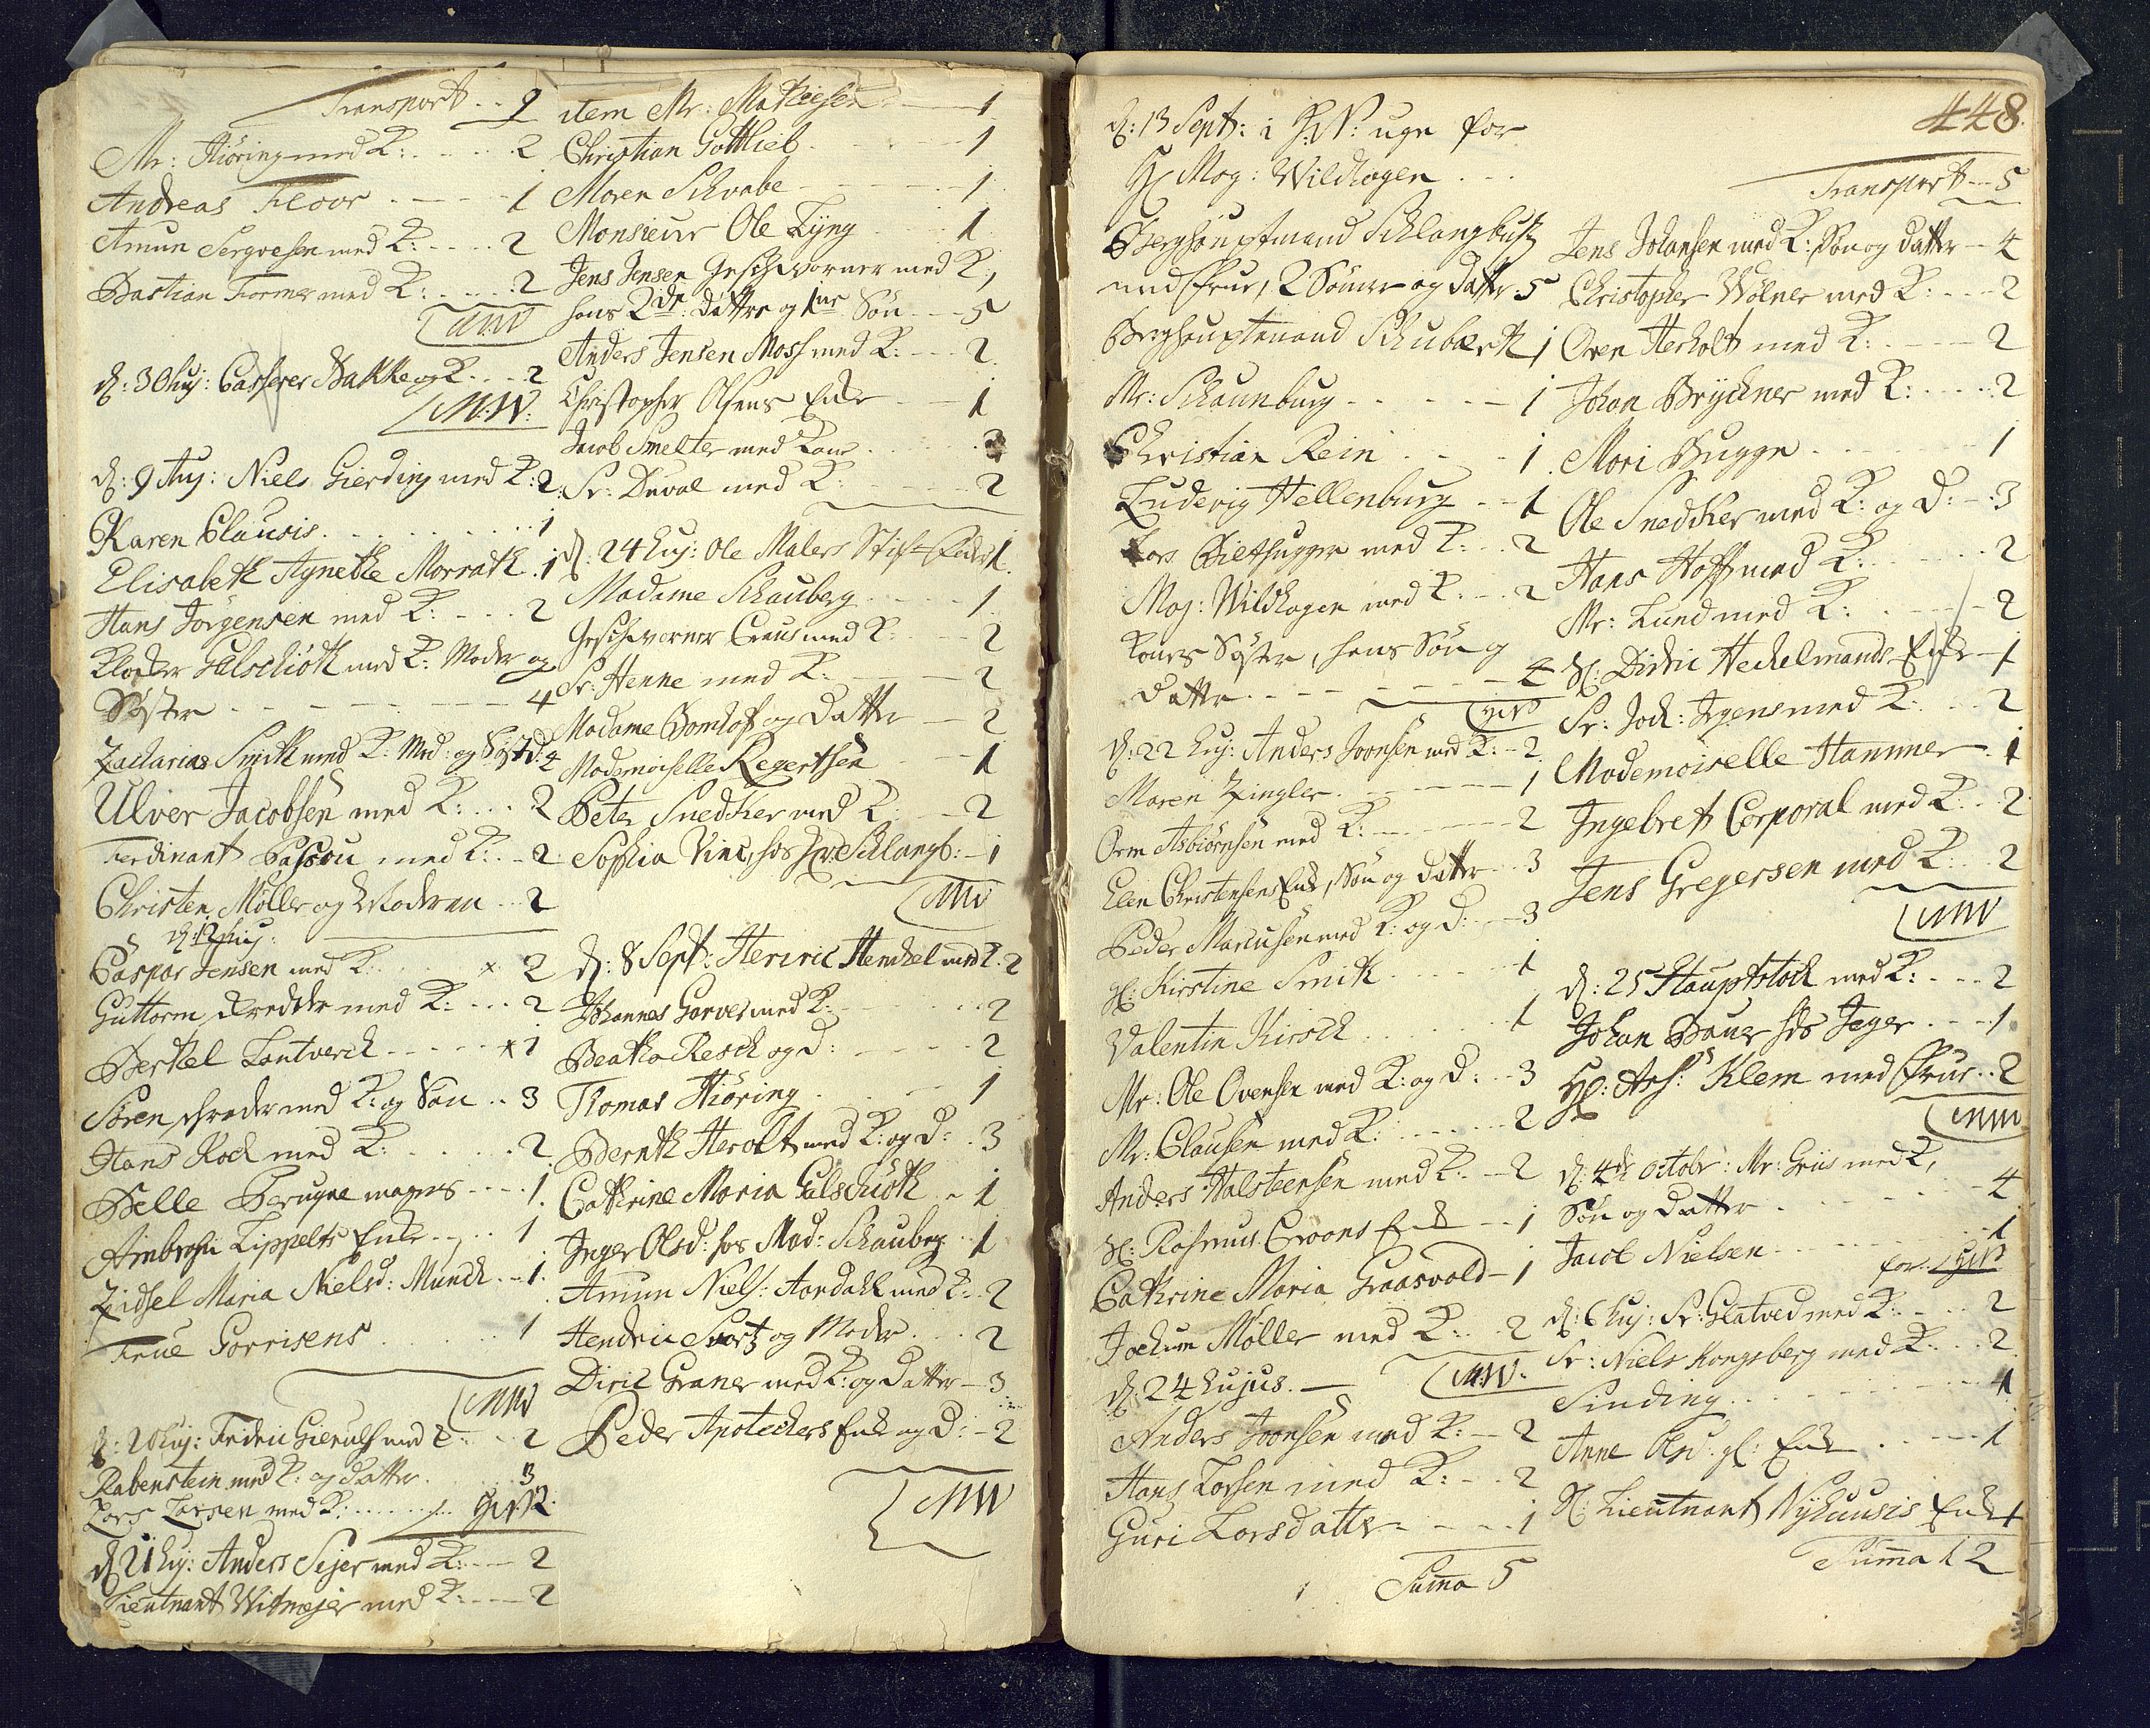 Transport . . 9
Mr: Hiöring med K: . . . . 2
Andreas Floor . . . . 1
Amun Sergvesen med K: . . . . 2
Bastian Former med K: . . . . 2
MW
d: 30 huj: Casserer Bakke og K . . . 2
M:W:
d: 9 Aug: Niels Gierding med K: 2
Karen Clausis . . . . 1
Elisabeth Agnethe Morrath . 1
Hans Jörgensen med K: . . . 2
Klocker Gulschiöth med K: Moder og
Söster . . . . 4
Zacharias Smith med K: Mod: og Syst: 4
Ulver Jacobsen med K: . . . 2
Ferdinant Passou med K: . . 2
Christen Möller og Moderen . . 2
d: 12 huj:
Caspar Jensen med K: . . . x 2
Guttorm med K: . . . 2
Berthel Lantverck . . . . x 1
Sören Schröder med K: og Sön . . 3
Hans Rock med K: . . . . 2
Pelle Peruqve magers . . . . 1
Ambrosii Lippelts Enke . . . 1
Zidsel Maria Nielsd: Munck . . 1
Frue Gorrisens . . . . 1
MW
d: 20 huj: Fredric Gierulf med K: . . . 2
Rabenstein med K: og datter . . . . 3
Lars Larsen med K: . . . . 2
d 21 huj: Anders Sejer med K: . . . 2
Lieutnant Witmejer med K: . . . 2
item Mr: Mathiesen . . . 1
Christian Gottlieb . . . 1
Maren Schvabe . . . 1
Monsieur Ole Lyng . . . 1
Jens Jensen Geschworner med K:,
hans 2de: döttre og 1ne Sön . . . 5
Anders Jensen Moss med K: . . . 2
Christopher Olsens Enke . . . 1
Jacob Smelter med Kone . . . . 3
Sr: Duval med K: . . . 2
d: 24 huj: Ole Malers Enke 1
Madame Schauberg . . . . 1
Geschworner Craus med K: . . . 2
Sr: Henne med K: . . . 2
Madame Bomhof og Datter . . 2
Mademoiselle Regertsen . . 1
Peter Snedker med K: . . . 2
Sophia Vinc, hos Hr: Schlangb: . 1
MW
d: 8 Sept: Henric Henckel med K. 2
Johannes Garver med K: . . . . 2
Beatha Resch og d: . . . . 2
Thomas Hiöring . . . . 1
Bernth Herolt med K: og D: . . 3
Cathrine Maria Gulschiöth . . 1
Inger Olsd: hos Mad: Schauberg . . 1
Amun Niels: Aardahl med K: . 2
Hendric Svartz og Moder . . . 2
Diric Graner med K: og datter . . 3
Peder Apoteckers Enke og D: . . 2
MW
448.
d: 13 Sept: i H:W: uge for
Hr Mag: Wildhagen . . .
Berghauptmand Schlangbusch
med Frue, 2 Sönner og datter 5
Berghauptmand Schubarth, 1
Mr: Schaunburg . . . . 1
Christian Rein . . . . 1
Ludevig Hellenburg . . . 1
Lars Bilthugger med K: . . 2
Mag: Wildhagen med K: . . . 2
Kones Syster, hans Sön og
datter . . . . 4
HW
d: 22 huj: Anders Joensen med K: . . 2
Maren Zingler . . . . 1
Orm Asbiörnsen med K: . . . . 2
Elen Christensens Enke, Sön og datter . . 3
Peder Marcusen med K: og d: . . . 3
Sl: Kirstine Smith . . . . 1
Valentin Kirsch . . . . 1
Mr: Ole Ovensen med K: og D: . . 3
Mr: Clausen med K: . . . . 2
Anders Halsteensen med K: . . 2
Sl: Rasmus Croons Enke . . 1
Cathrine Maria Graasvold . 1
Jochum Möller med K: . . 2
d: 24 hujus.
M:W:
Anders Joensen med K: . . 2
Hans Larsen med K: . . . 2
Guri Larsdatter . . . . 1
Summa 5
Transport . . . 5
Jens Johansen med K: Sön og datter . . 4
Christopher Wölner med K: . . . 2
Oven Herholt med K: . . . . 2
Johan Brÿckner med K: . . . . 2
Mari Bugge . . . . 1
Ole Snedcker med K: og d: . . 3
Hans Hoff med K: . . . . 2
Mr: Lund med K: . . . . 2
Sl: Dirric Heckelmands Enke . 1
Sr: Joch: Irgens med K: . . . 2
Mademoiselle Hammer . . 1
Ingebret Corporal med K . . 2
Jens Gregersen med K: . . 2
MW
d: 25 Hauptstock med K: . . . 2
Johan Bauer hos Jeger . . . 1
Hr: Ass: Klem med Frue . . 2
MW
d: 4de Octobr: Mr: Griis med K,
Sön og datter . . . . 4
Jacob Nielsen . . . . 1
for HW
d: 6 huj: Sr: Glatved med K: . . . 2
Sr: Niels Kongsberg med K . . . 2
Sinding . . . . 1
Anne Olsd: gl: Enke . . . . 1
Sl: Lieutnant Nyhuusis Enke 1
Summa 12